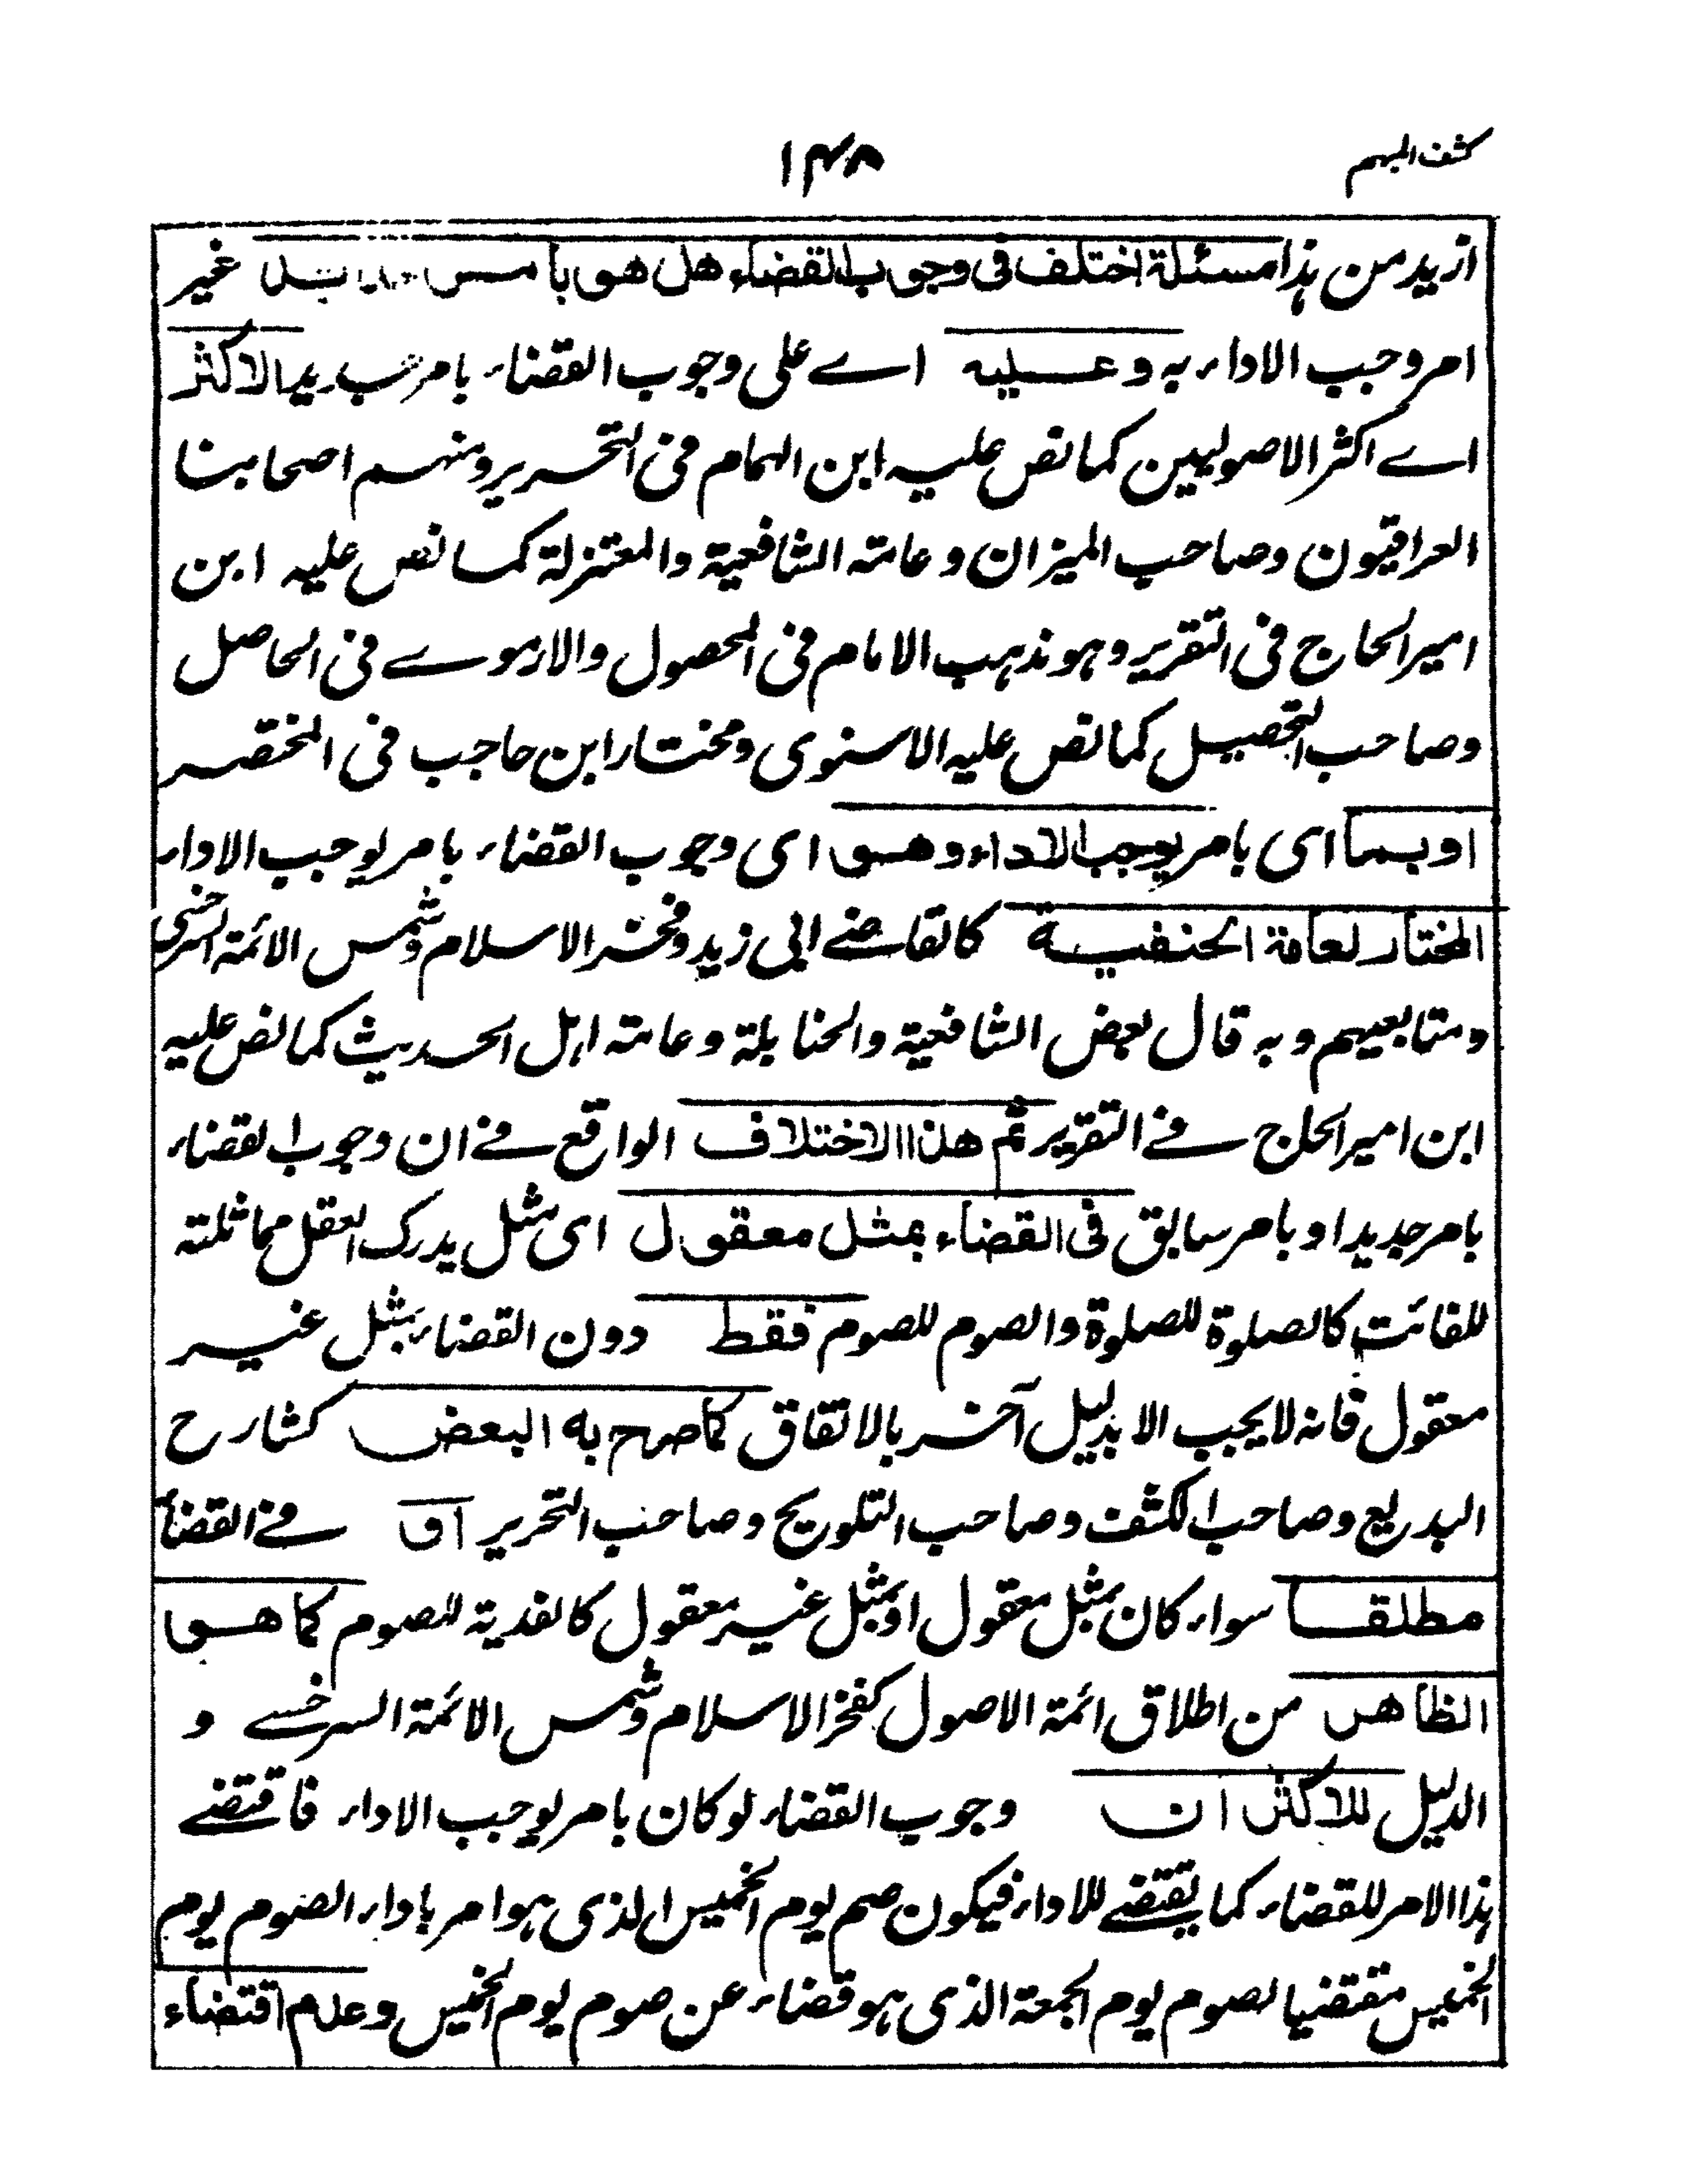 كشف المبهم
١٣٨
ازيد من هذا مسئلة اختلف في وجوب القضاء هل هو بامر جديد غير
امر وجب الاداء به وعليه اے على وجوب القضاء بامر جديد الاكثر
اے اكثر الاصوليين كما نص عليه ابن الهمام في التحرير ومنهم اصحابنا
العراقيون وصاحب الميزان وعامة الشافعية والمعتزلة كما نص عليه ابن
امير الحاج في التقرير وهو مذهب الامام في المحصول والارموے في الحاصل
وصاحب التحصيل كما نص عليه الاسنوى ومختار ابن حاجب في المختصر
او بما اى بامر يوجب الاداء وهو اى وجوب القضاء بامر يوجب الاداء
المختار لعامة الحنفية كالقاضے ابى زيد وفخر الاسلام وشمس الائمة السرخسى
ومتابعيهم وبه قال بعض الشافعية والحنابلة وعامة اهل الحديث كما نص عليه
ابن امير الحاج فے التقرير ثم هذا الاختلاف الواقع فے ان وجوب القضاء
بامر جديد او بامر سابق في القضاء بمثل معقول اى مثل يدرك العقل مماثلته
للفائت كالصلوة للصلوة والصوم للصوم فقط دون القضاء بمثل غير
معقول فانه لا يجب الا بدليل آخر بالاتفاق كما صرح به البعض كشارح
البديع وصاحب الكشف وصاحب التلويح وصاحب التحرير او فے القضاء
مطلقا سواء كان بمثل معقول او بمثل غير معقول كالفدية للصوم كما هو
الظاهر من اطلاق ائمة الاصول كفخر الاسلام وشمس الائمة السرخسے و
الدليل للاكثر ان وجوب القضاء لو كان بامر يوجب الاداء فاقتضے
هذا الامر للقضاء كما يقتضے للاداء فيكون صم يوم الخميس الذى هو امر باداء الصوم يوم
الخميس مقتضيا لصوم يوم الجمعة الذى هو قضاء عن صوم يوم الخميس وعدم اقتضاء